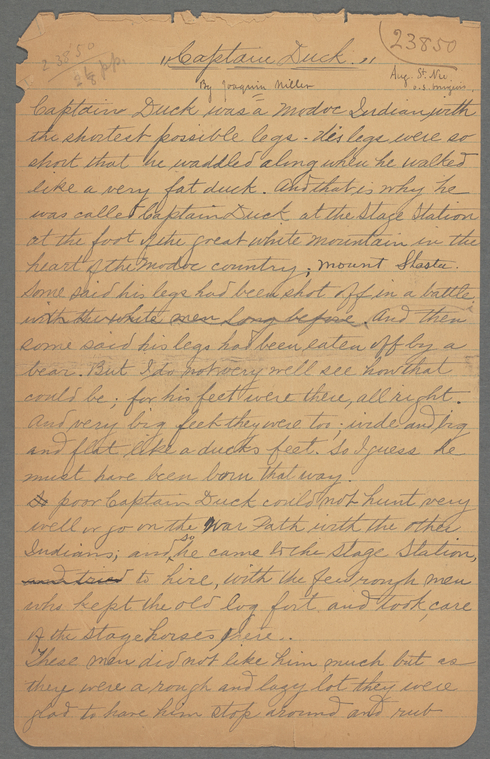 23850
2 1/8 pp.
"Captain Duck."
23850
By Joaquin Miller
Aug. St. Nic
Captain Duck was a Modoc Indian, with
the shortest possible legs. His legs were so
short that he waddled along when he walked
like a very fat duck. And that is why he
was called Captain Duck at the Stage Station
at the foot of the great white mountain in the
heart of the Modoc country; Mount Shasta.
Some said his legs had been shot off in a battle
with the white men long before. And then
some said his legs had been eaten off by a
bear. But I do not very well see how that
could be; for his feet were there, all right.
And very big feet they were too; wide and big
and flat, like a ducks feet. So I guess he
must have been born that way.
So poor Captain Duck could not hunt very
well or go on the War Path with the other
Indians; and so he came to the Stage Station,
and tried to hire, with the few rough men
who kept the old log fort and took care
of the stage horses here..
These men did not like him much but as
they were a rough and lazy lot they were
glad to have him stop around and rub